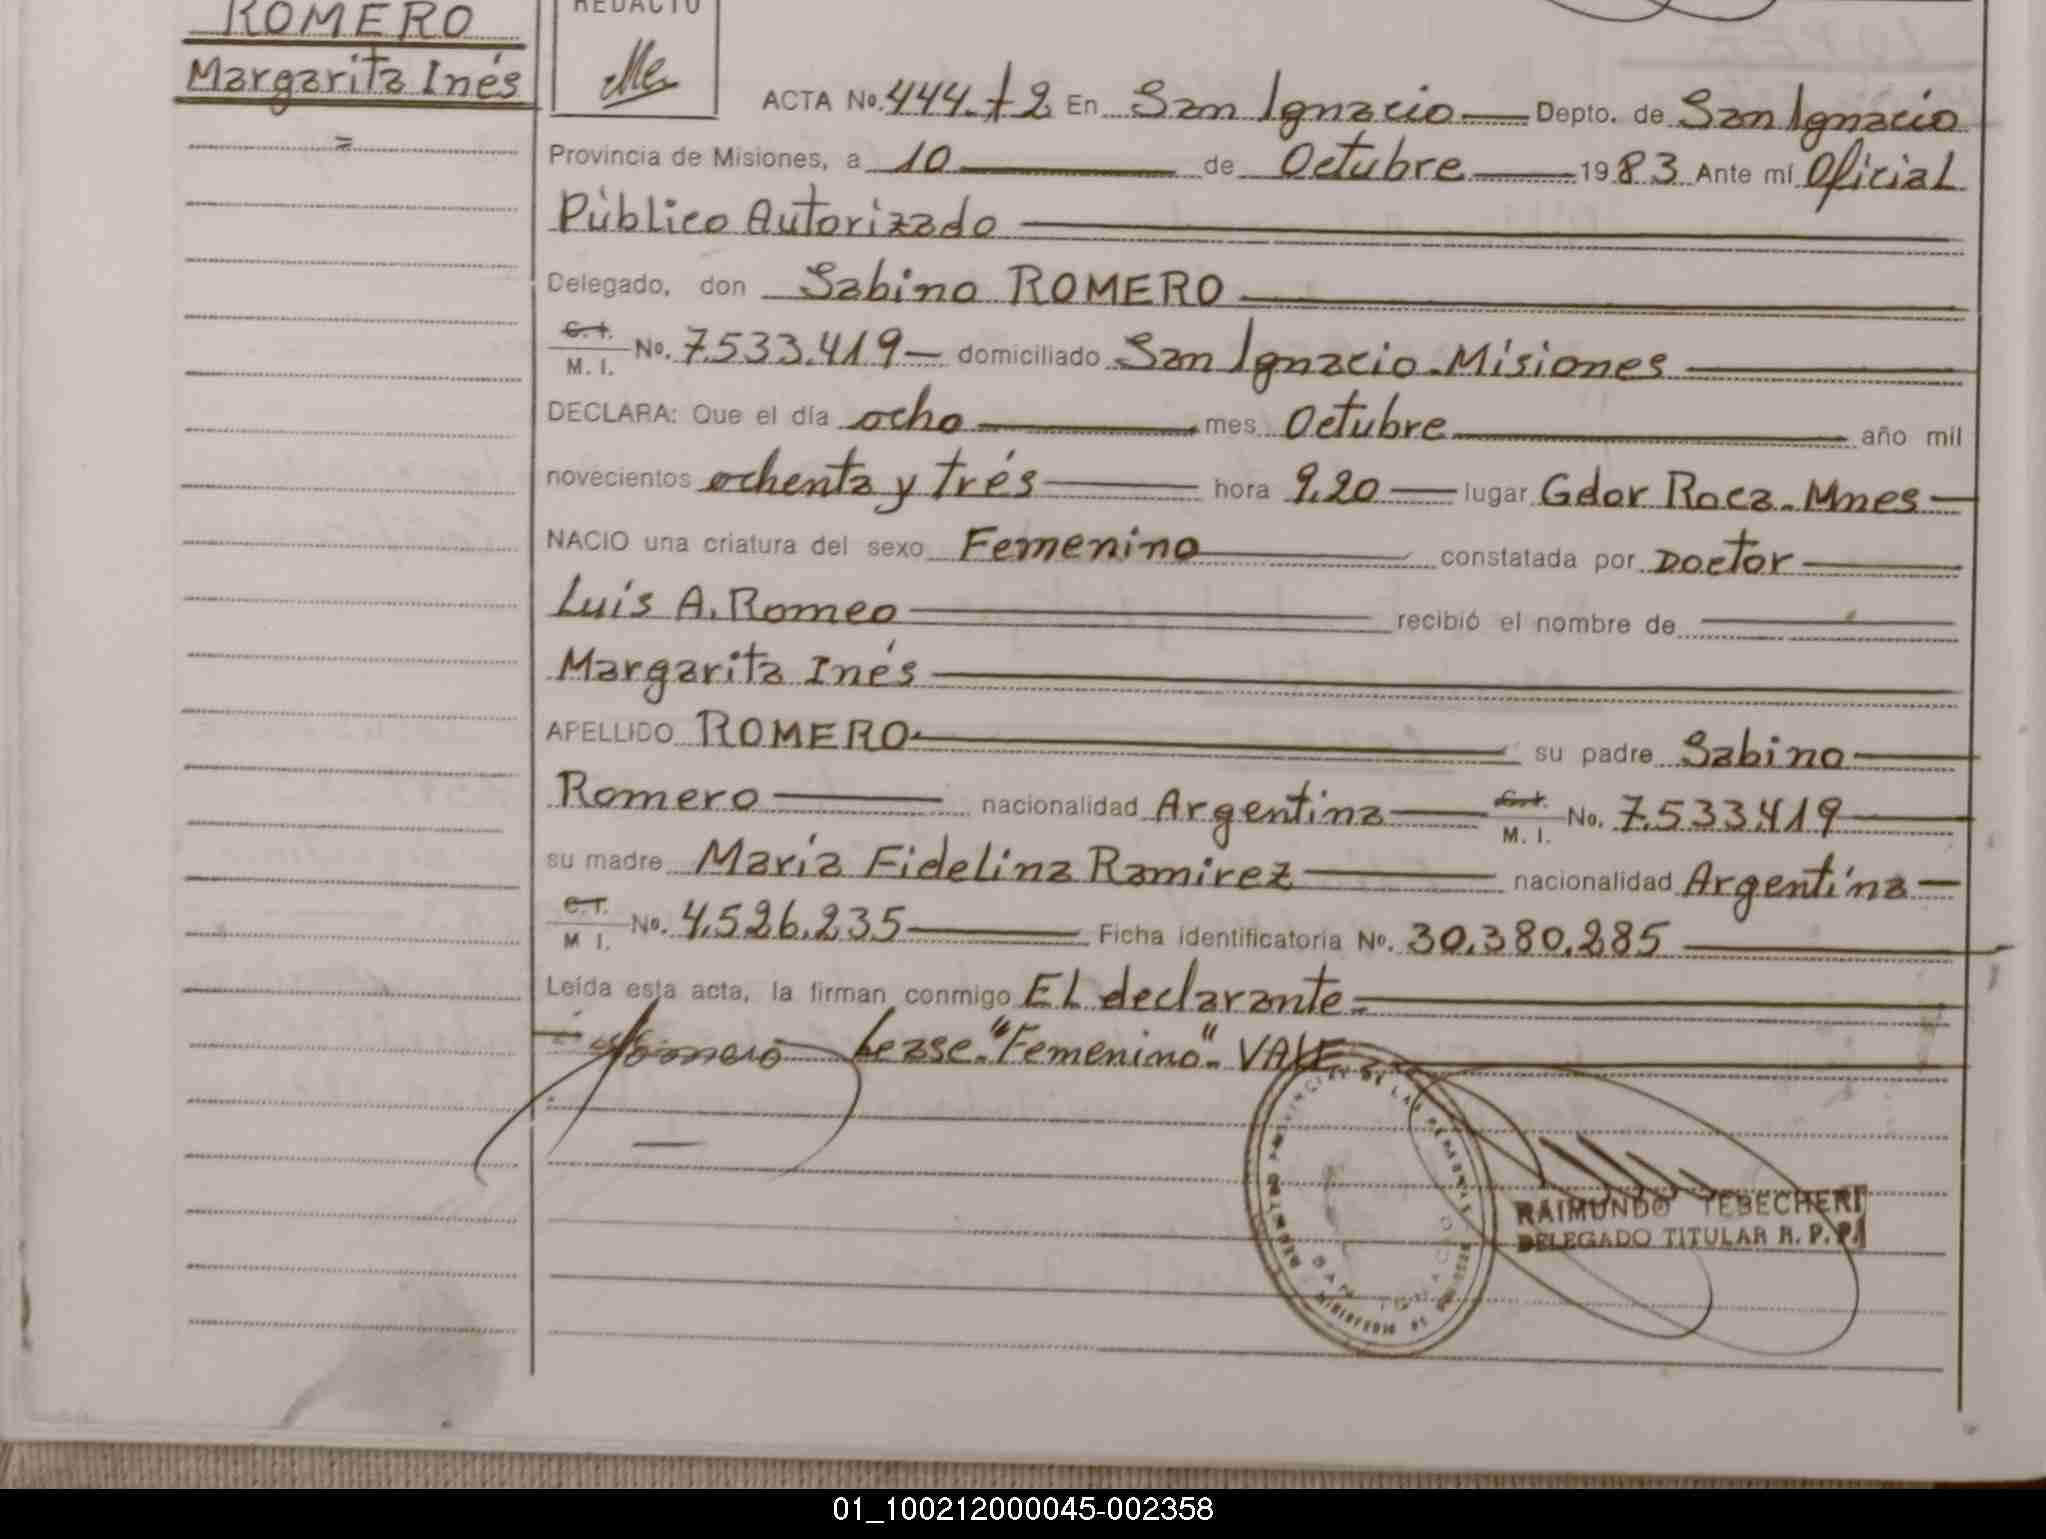 ROMERO
Margarita Inés
=
REDACTO
ACTA No. 444. t2 En San Ignacio Depto. de San Ignacio
Provincia de Misiones, a 10 de Octubre 1983 Ante mí Oficial
Público Autorizado
Delegado, don Sabino ROMERO
C.I. M. I. No. 7.533.419 domiciliado San Ignacio. Misiones
DECLARA: Que el día ocho mes Octubre año mil
novecientos ochenta y trés hora 9,20 lugar Gdor Roca. Mnes
NACIO una criatura del sexo Femenino constatada por Doctor
Luis A. Romeo recibió el nombre de
Margarita Inés
APELLIDO ROMERO su padre Sabino
Romero nacionalidad Argentina C.I. M. I. No. 7.533.419
su madre María Fidelina Ramirez nacionalidad Argentina
C.I. M I. No. 4.526.235 Ficha identificatoria No. 30.380.285
Leída esta acta, la firman conmigo EL declarante.
Romero Lease. "Femenino". VALE
PROVINCIAL DE LAS PERSONAS
SAN IGNACIO
MINISTERIO DE
RAIMUNDO TEBECHERI
DELEGADO TITULAR R. P. P.
01_100212000045-002358